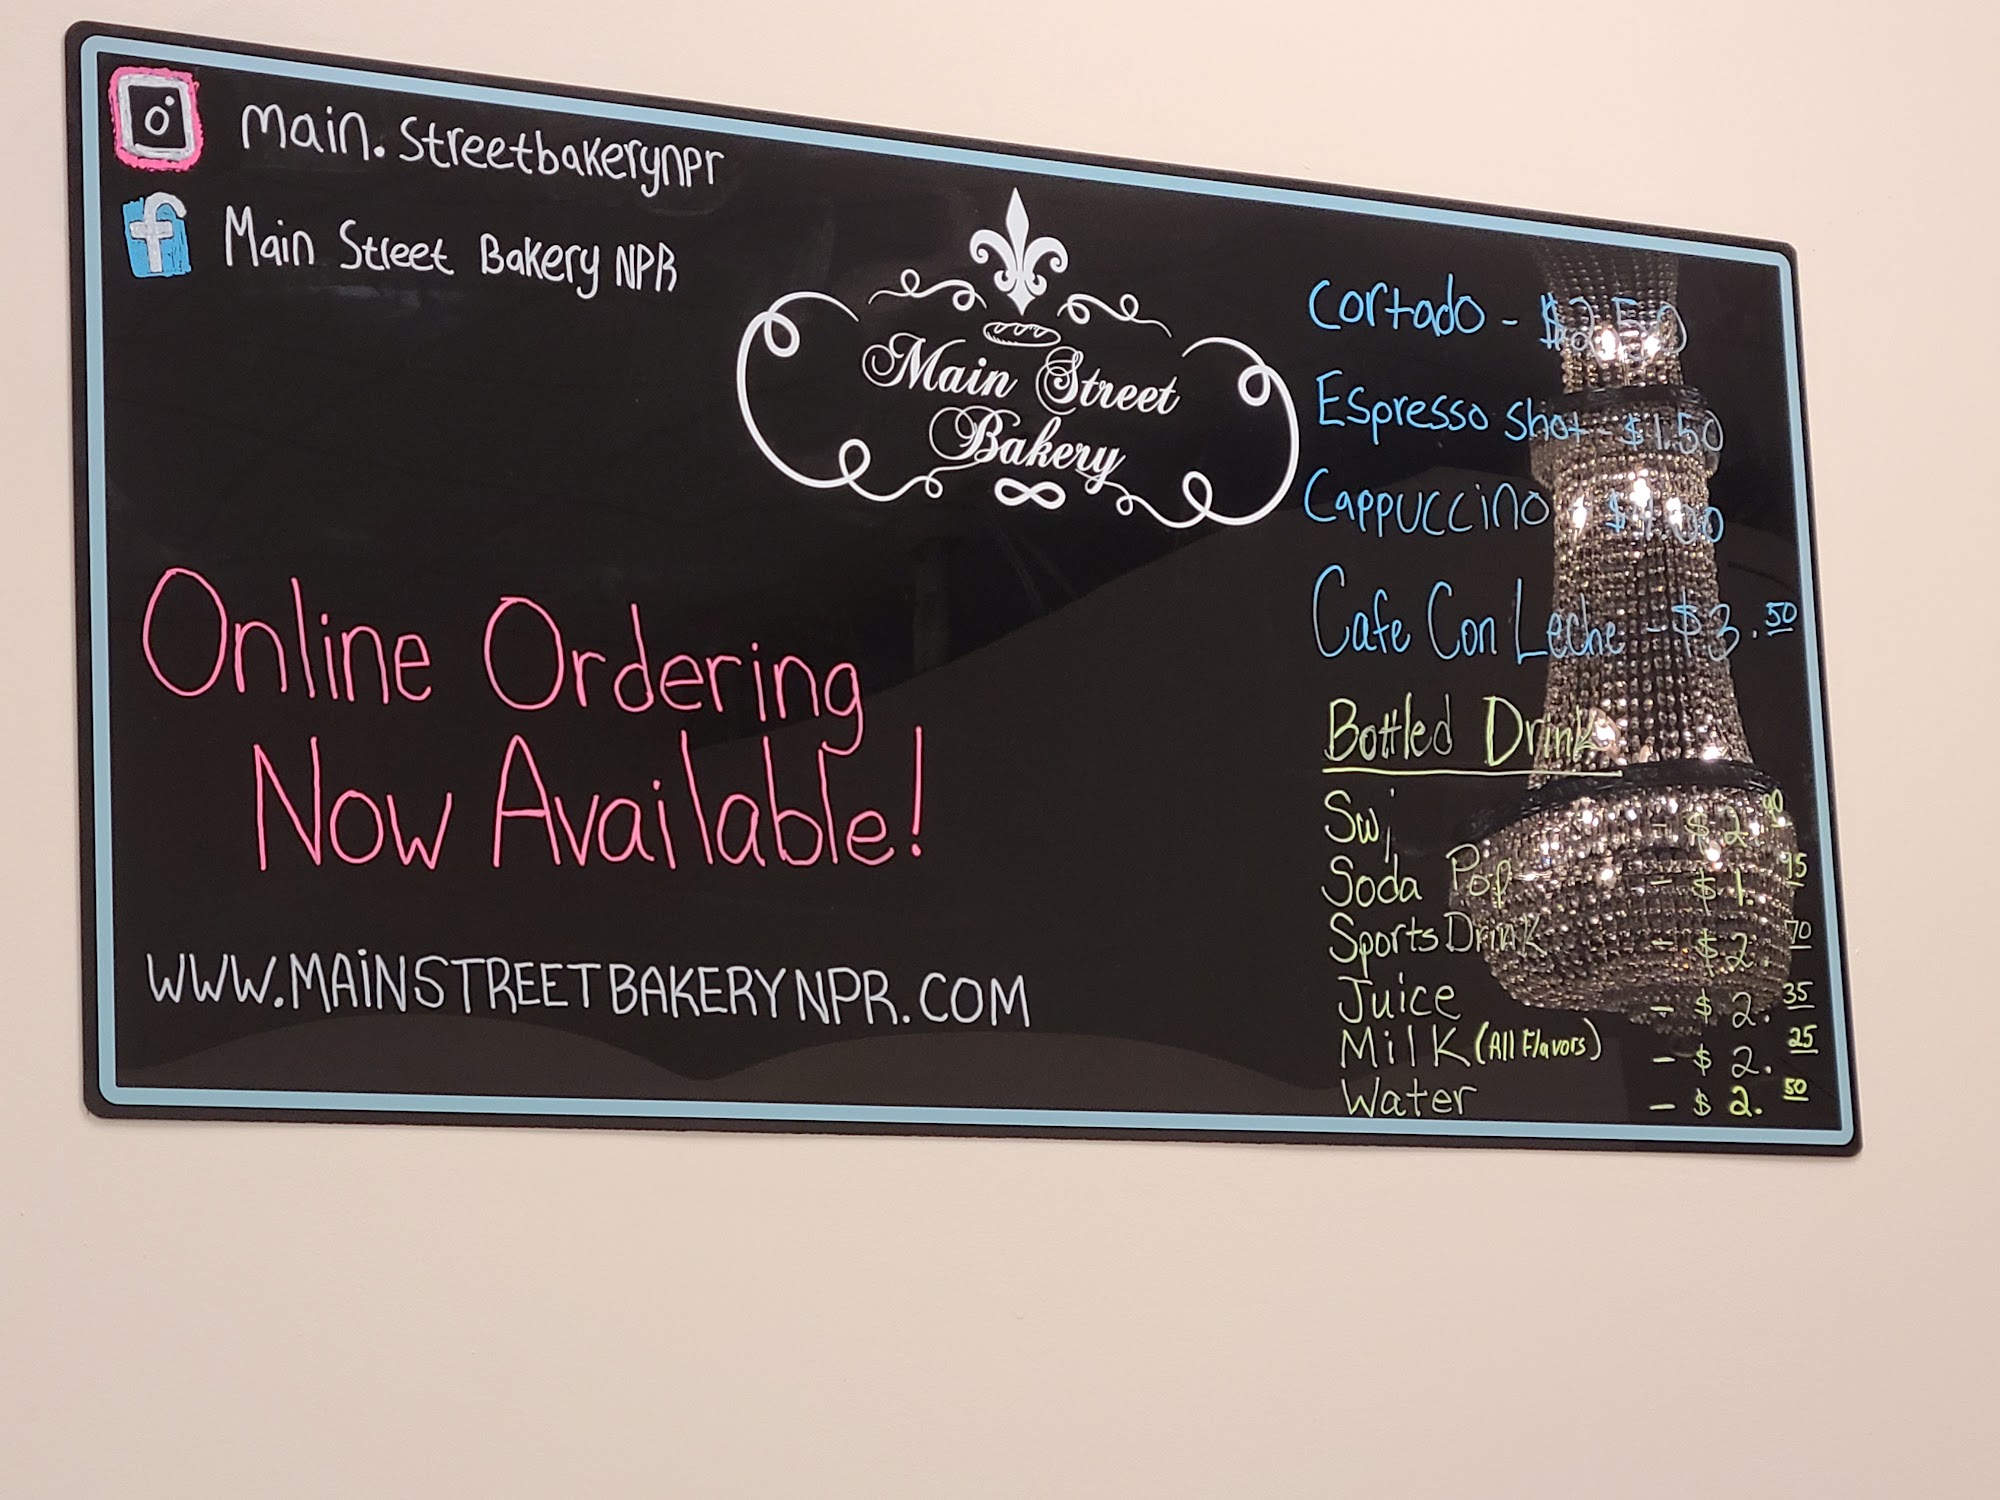 main.streetbakerynpr
Main Street Bakery NPR
Main Street
Bakery
Online Ordering
Now Available!
WWW.MAINSTREETBAKERYNPR.COM
Cortado - $2.50
Espresso Shot - $1.50
Cappuccino
Cafe Con Leche - $3.50
Bottled Drink
- $2.90
Soda Pop - $1.95
Sports Drink - $2.70
Juice - $2.35
Milk (All Flavors) - $2.25
Water - $2.50